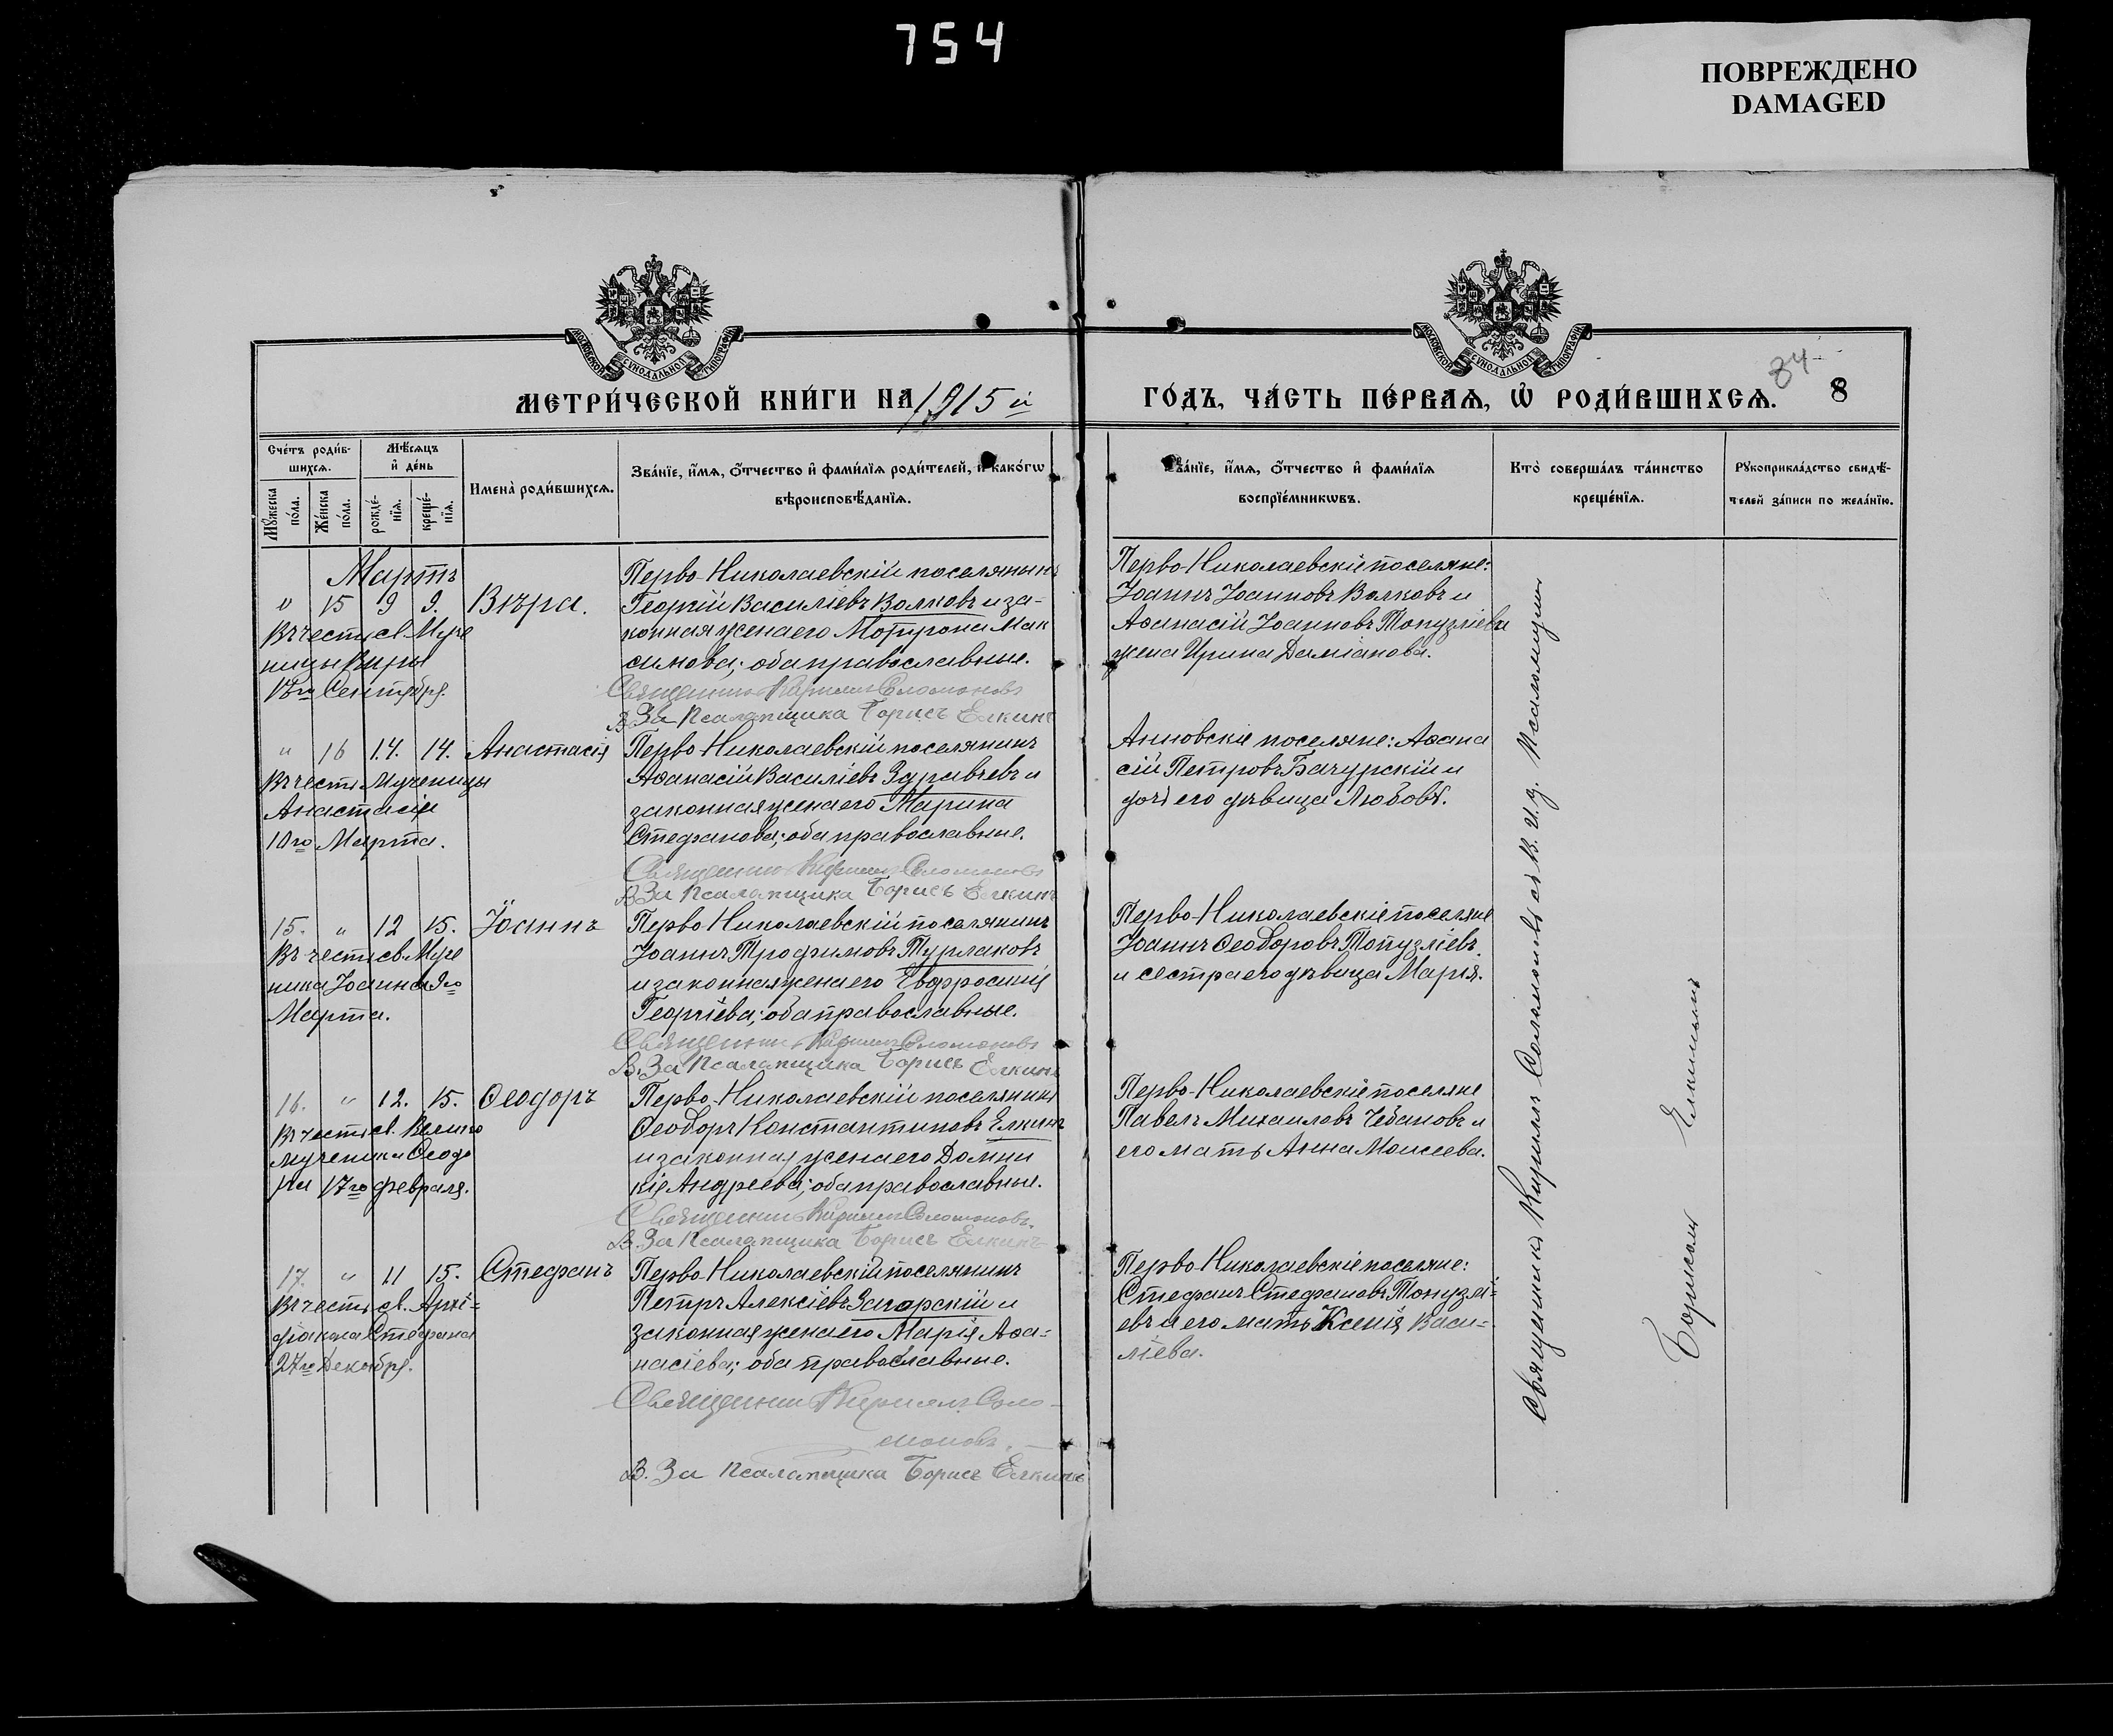 754
ПОВРЕЖДЕНО
DAMAGED
МОСКОВСКОЙ СѴНОДАЛЬНОЙ ТИПОГРАФІИ
МОСКОВСКОЙ СѴНОДАЛЬНОЙ ТИПОГРАФІИ
МЕТРИ́ЧЕСКОЙ КНИ́ГИ НА 1915 й
ГО́ДЪ, ЧА́СТЬ ПЕ́РВАѦ, Ѡ҆ РОДИ́ВШИХСѦ.
84
8
Сче́тъ роди́в-
шихсѧ.
Мѣ́сѧцъ
и҆ де́нь
Мꙋ́жеска
по́ла.
Же́нска
по́ла.
рожде́-
нїѧ.
креще́-
нїѧ.
Имена̀ роди́вшихсѧ.
Зва́нїе, и҆́мѧ, ѻ҆́тчество и҆ фами́лїѧ роди́телей, и҆ како́гѡ
вѣроисповѣ́данїѧ.
Зва́нїе, и҆́мѧ, ѻ҆́тчество и҆ фами́лїѧ
воспрїе́мникѡвъ.
Кто̀ соверша́лъ та́инство
креще́нїѧ.
Рꙋкоприкла́дство свидѣ́-
телей за́писи по жела́нїю.
Мартъ
" 15 9 9. Вѣра.
Въ честь св. Муче
ницы Вѣры
17го Сентября.
Перво-Николаевскій поселянинъ
Георгій Василіевъ Волковъ и за-
конная жена его Матрона Мак
симова; оба православные.
Священникъ Кириллъ Соломоновъ
В. За Псаломщика Борисъ Елкинъ
Перво-Николаевскіе поселяне:
Іоаннъ Іоанновъ Волковъ и
Аѳанасій Іоанновъ Топузліевъ
жена Ирина Даміанова.
" 16 14. 14. Анастасія
Въ честь Мученицы
Анастасіи
10го Марта.
Перво-Николаевскій поселянинъ
Аѳанасій Василіевъ Здравчевъ и
законная жена его Марина
Стефанова; оба православные.
Священникъ Кириллъ Соломоновъ
В. За Псаломщика Борисъ Елкинъ
поселяне: Аѳана
сій Петровъ Бачурскій и
дочь его дѣвица Любовь.
15. " 12 15. Іоаннъ
Въ честь св. Муче
ника Іоанна 9го
Марта.
Перво-Николаевскій поселянинъ
Іоаннъ Трофимовъ Турлаковъ
и законная жена его Евфросинія
Георгіева; оба православные.
Священникъ Кириллъ Соломоновъ
В. За Псаломщика Борисъ Елкинъ
Перво-Николаевскіе поселяне
Іоаннъ Ѳеодоровъ Топузліевъ
и сестра его дѣвица Марія.
16. " 12. 15. Ѳеодоръ
Въ честь св. Велико
мученика Ѳеодо
ра 17го февраля.
Перво-Николаевскій поселянинъ
Ѳеодоръ Константиновъ Елкинъ
и законная жена его Домни
кія Андреева; оба православные.
Священникъ Кириллъ Соломоновъ.
В. За Псаломщика Борисъ Елкинъ
Перво-Николаевскіе поселяне
Павелъ Михаиловъ Чебановъ и
его мать Анна Моисеева.
17. " 11 15. Стефанъ
Въ честь св. Архи-
діакона Стефана
27го Декабря.
Перво-Николаевскій поселянинъ
Петръ Алексіевъ Загорскій и
законная жена его Марія Аѳа-
насіева; оба православные.
Священникъ Кириллъ Соло-
моновъ.
В. За Псаломщика Борисъ Елкинъ
Перво-Николаевскіе поселяне:
Стефанъ Стефановъ Топузлі-
евъ и его мать Ксенія Васи-
ліева.
Священникъ Кириллъ Соломоновъ съ В. И. д. Псаломщика
Борисомъ Елкинымъ